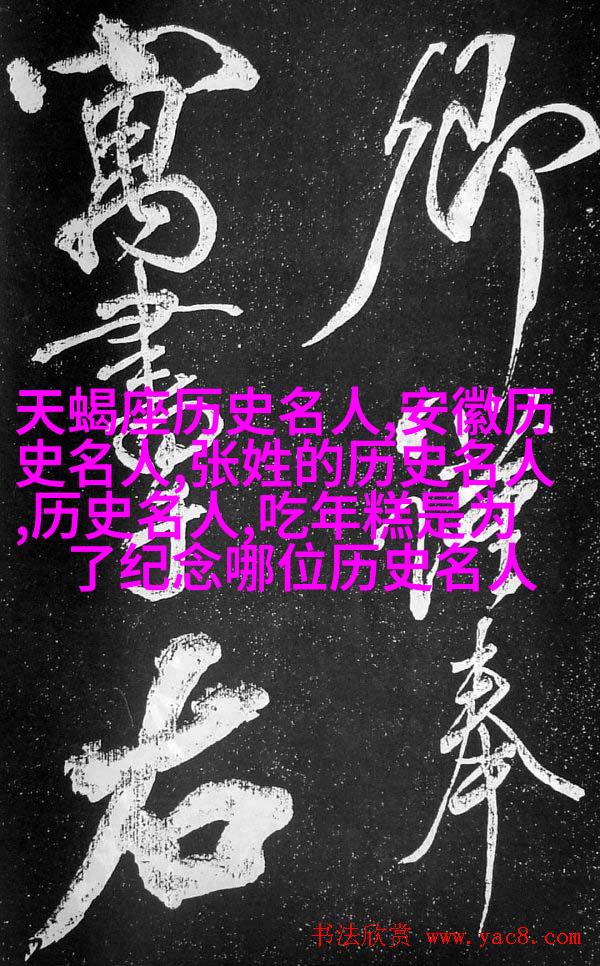 卿奉
寓書右
天蝎座历史名人,安徽历
史名人,张姓的历史名人
,历史名人,吃年糕是为
了纪念哪位历史名人
书法欣赏 www.yac8.com